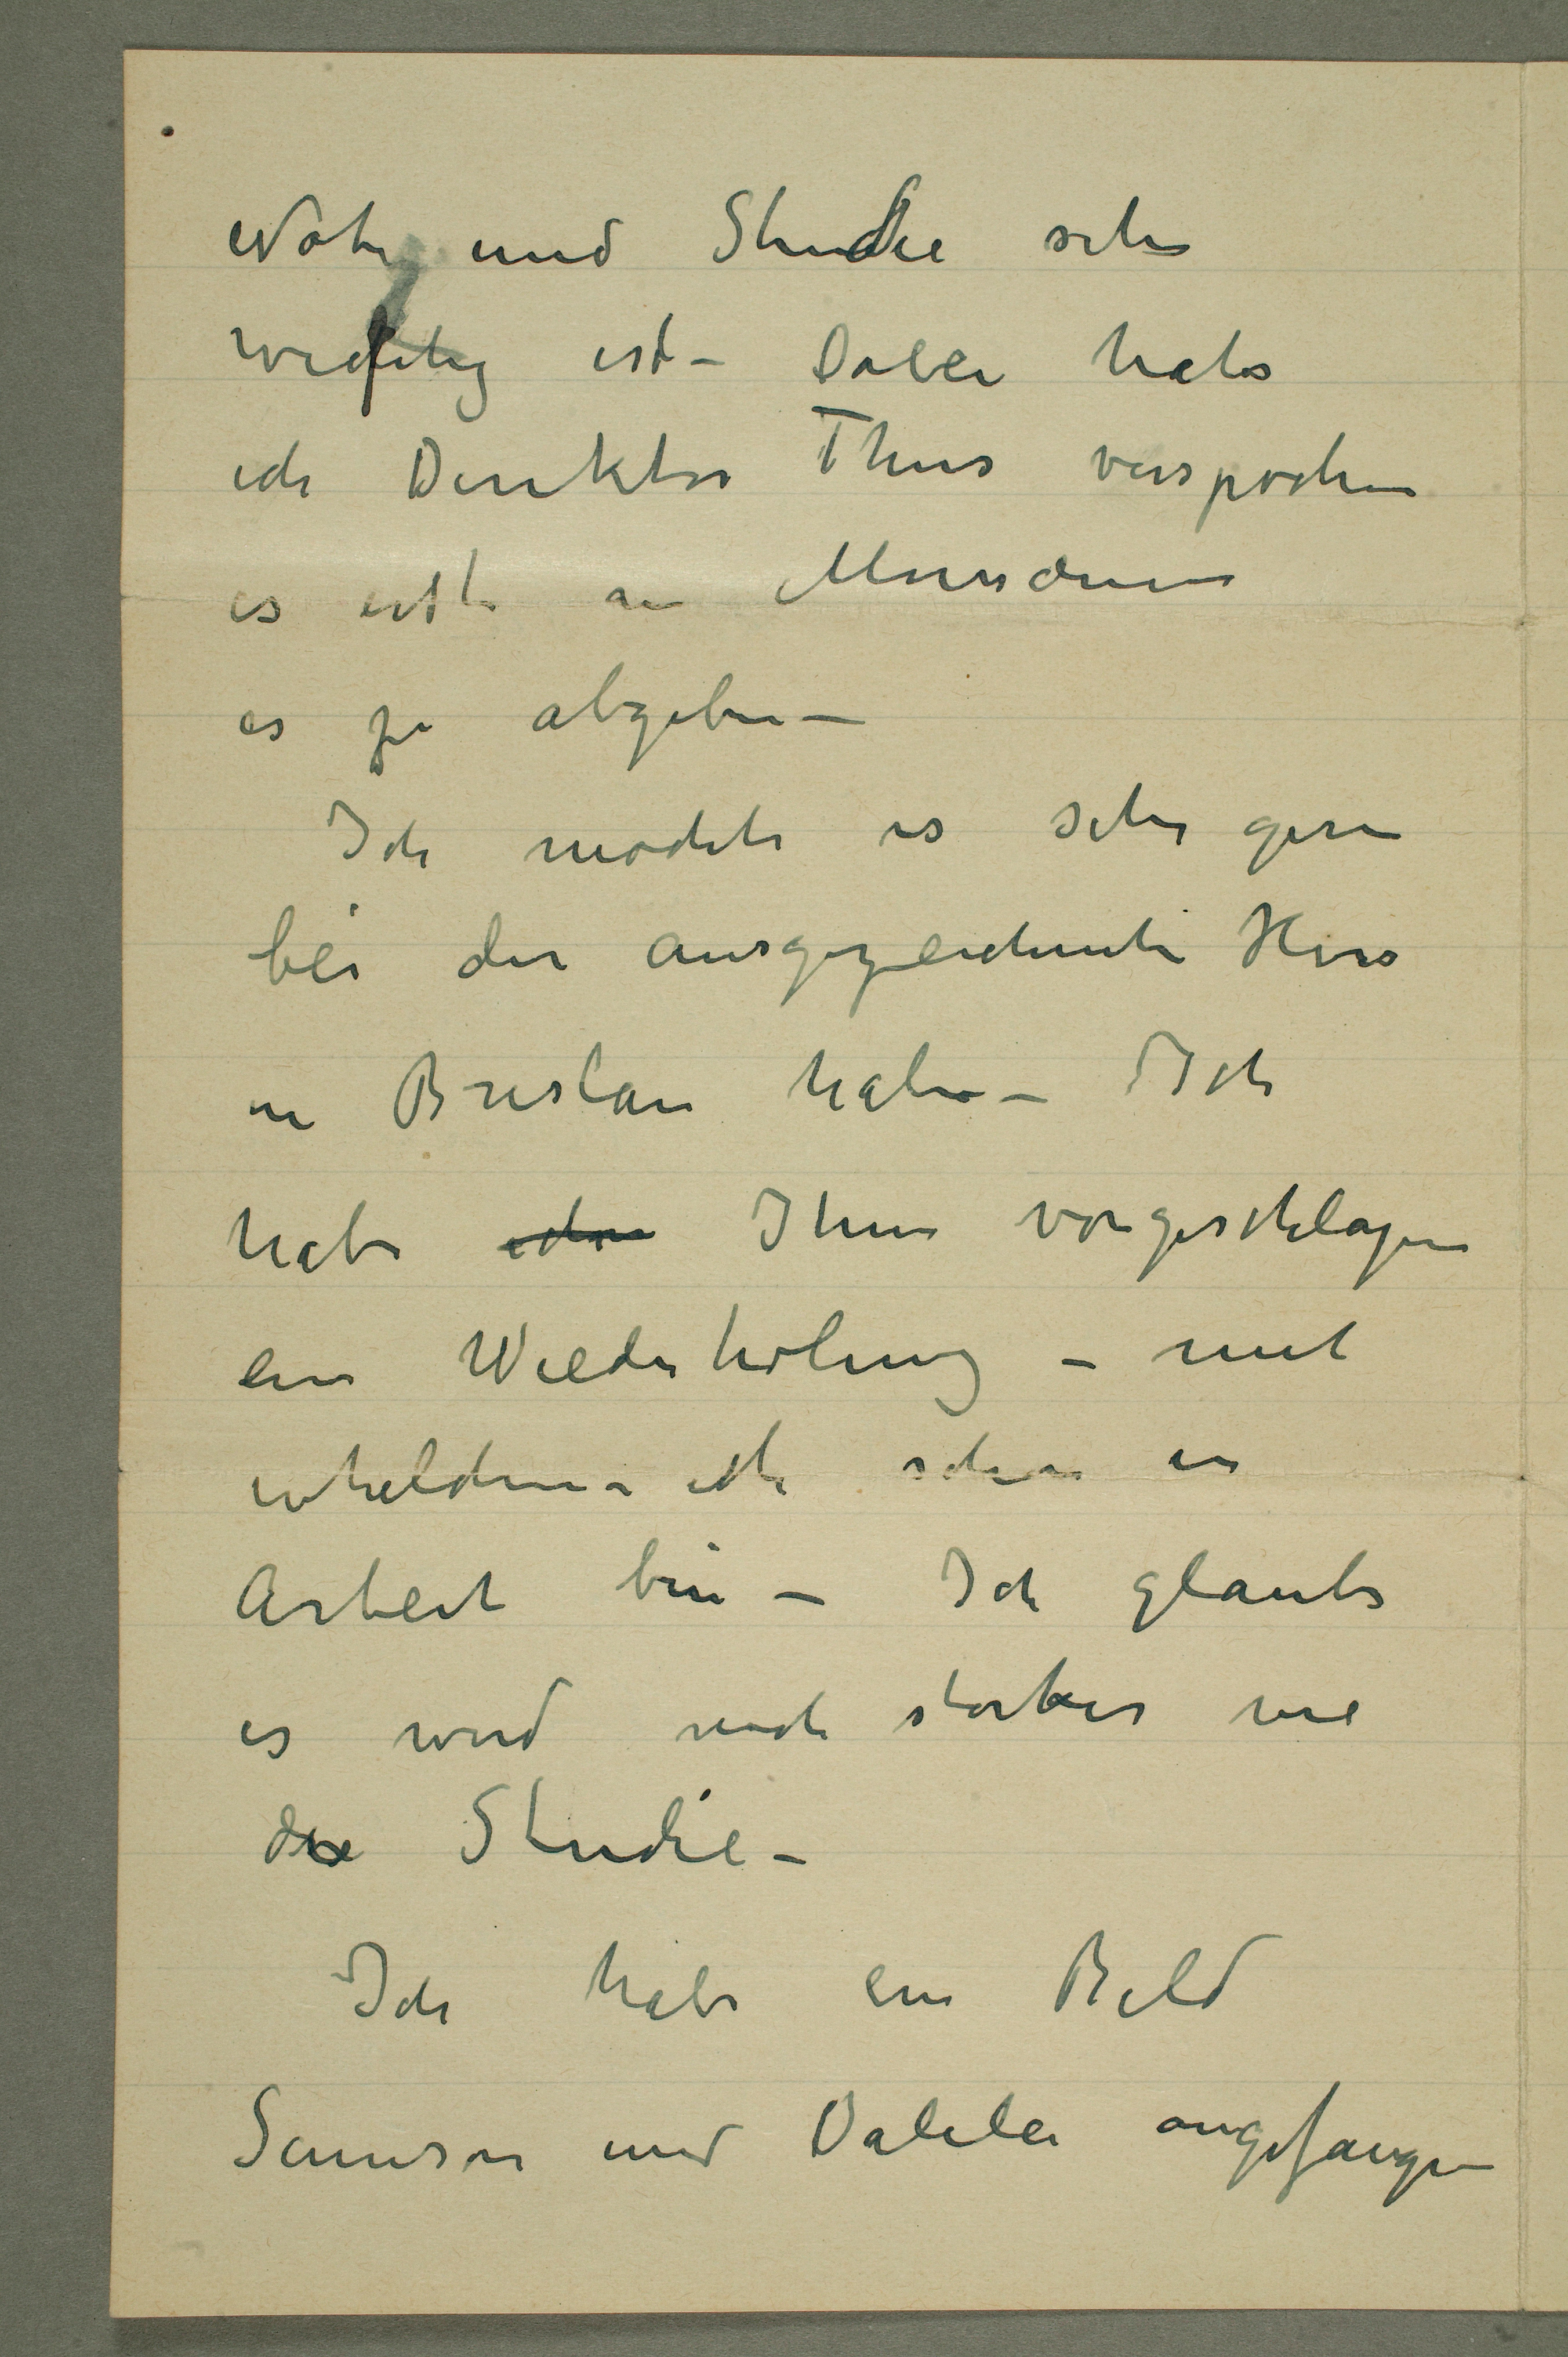 Natur und Studie sehr
wichtig ist – Dabei habe
ich Direktor Thiis versprochen
es erst an Museum
es zu abgeben –
Ich mochte es sehr gern
bei der ausgezeichnete Herr
in Breslau haben – Ich
habe Ihnen vorgeschlagen
ein Wiederholung – mit
whelchem ich schon in
Arbeit bin – Ich glaube
es wird noch starker wie
die Studie –
Ich habe ein Bild
Samson und Dalila angefangen